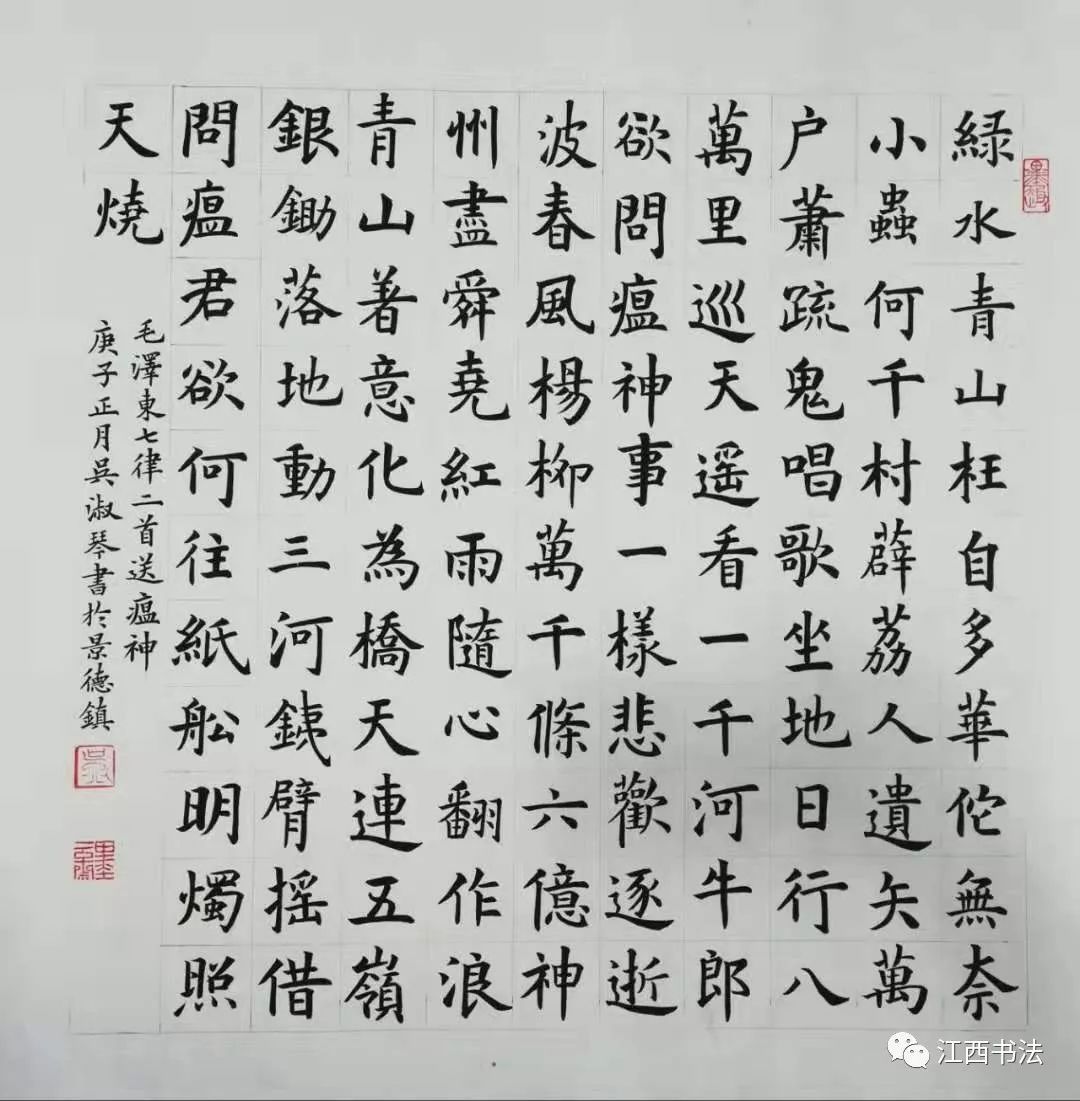 緑水青山枉自多華佗無奈
小蟲何千村薜荔人遺矢萬
户蕭疏鬼唱歌坐地日行八
萬里巡天遥看一千河牛郎
欲問瘟神事一樣悲歡逐逝
波春風楊柳萬千條六億神
州盡舜堯紅雨隨心翻作浪
青山著意化為橋天連五嶺
銀鋤落地動三河銕臂摇借
問瘟君欲何往紙舩明燭照
天燒
毛澤東七律二首送瘟神
庚子正月吴淑琴書於景德鎮
江西书法